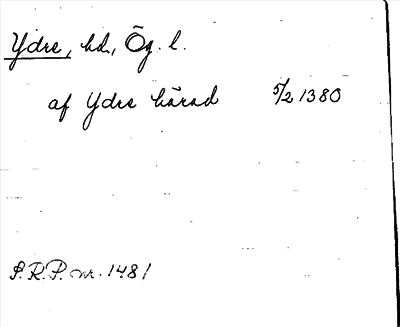 Ydre, hd., Ög. l.
af Ydre härad 5/2 1380
S.R.P. nr. 1481